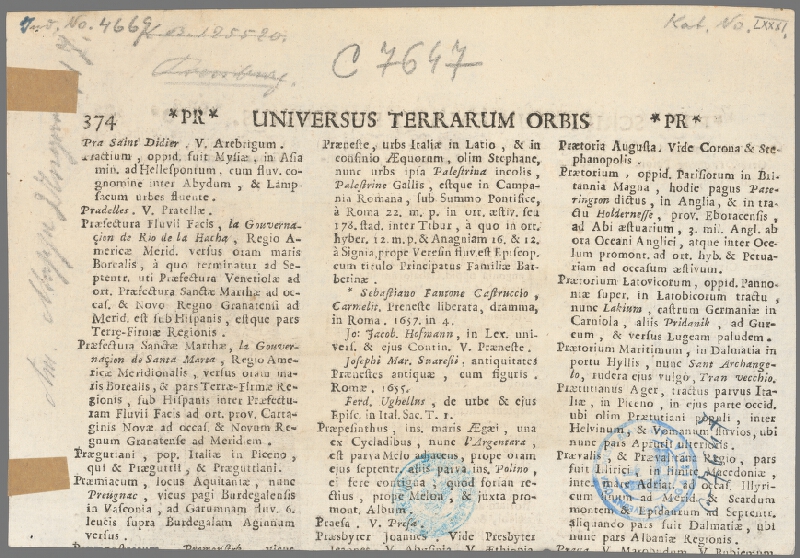 Ind. No. 4669
Kat. No. LXXXI.
C 7647
374 *PR* UNIVERSUS TERRARUM ORBIS *PR*
Pra Saint Didier. V. Arebrigum.
Practium, oppid. fuit Mysiæ, in Asia
min. ad Hellespontum, cum fluv. co-
gnomine inter Abydum, & Lamp-
sacum urbes fluente.
Pradelles. V. Pratellæ.
Præfectura Fluvii Facis, la Gouverna-
çion de Rio de la Hacha, Regio A-
mericæ Merid. versus oram maris
Borealis, à quo terminatur ad Se-
ptentr. uti Præfectura Venetiolæ ad
ort. Præfectura Sanctæ Marthæ ad oc-
cas. & Novo Regno Granatensi ad
Merid. est sub Hispanis, estque pars
Terræ-Firmæ Regionis.
Præfectura Sanctæ Marthæ, la Gouver-
naçion de Santa Marta, Regio Ame-
ricæ Meridionalis, versus oram ma-
ris Borealis, & pars Terræ-Firmæ Re-
gionis, sub Hispanis inter Præfectu-
ram Fluvii Facis ad ort. prov. Carta-
ginis Novæ ad occas. & Novum Re-
gnum Granatense ad Meridiem.
Præguttani, pop. Italiæ in Piceno,
qui & Præguttii, & Prægutiani.
Præmiacum, locus Aquitaniæ, nunc
Preignac, vicus pagi Burdegalensis
in Vasconia, ad Garumnam fluv. 6.
leucis supra Burdegalam Aginnum
versus.
Præneste, urbs Italiæ in Latio, & in
confinio Æquorum, olim Stephane,
nunc urbs ipsa Palestrina incolis,
Palestrine Gallis, estque in Campa-
nia Romana, sub Summo Pontifice,
à Roma 22. m. p. in ort. æstiv. seu
178. stad. inter Tibur, à quo in ort.
hyber. 12. m. p. & Anagniam 16. & 12.
à Signia, prope Veresin fluv. est Episcop.
cum titulo Principatus Familiæ Bar-
berinæ.
* Sebastiano Fantone Castruccio,
Carmelit. Preneste liberata, dramma,
in Roma. 1657. in 4.
Jo: Jacob. Hofmann, in Lex. uni-
vers. & ejus Contin. V. Præneste.
Josephi Mar. Suaresii, antiquitates
Prænestes antiquæ, cum figuris.
Romæ, 1655.
Ferd. Ughellus, de urbe & ejus
Episc. in Ital. Sac. T. 1.
Præpesinthus, ins. maris Ægæi, una
ex Cycladibus, nunc l'Argentara,
est parva Melo proxima, prope oram
ejus septentr. aliis parva ins. Polino,
ei fere contigua, quod forsan re-
ctius, prope Melon, & juxta pro-
mont. Album.
Præsa. V. Presa.
Præsbyter Joannes. Vide Presbyter
Prætoria Augusta. Vide Corona & Ste-
phanopolis.
Prætorium, oppid. Parisiorum in Bri-
tannia Magna, hodie pagus Pate-
rington dictus, in Anglia, & in tra-
ctu Holdernesse, prov. Eboracensis,
ad Abi æstuarium, 3. mil. Angl. ab
ora Oceani Anglici, atque inter Oce-
lum promont. ad ort. hyb. & Petua-
riam ad occasum æstivum.
Prætorium Latovicorum, oppid. Panno-
niæ super. in Latobicorum tractu,
nunc Lakium, castrum Germaniæ in
Carniola, aliis Pridanik, ad Gur-
cum, & versus Lugeam paludem.
Prætorium Maritimum, in Dalmatia in
portu Hyllis, nunc Sant Archange-
lo, rudera ejus vulgò, Tran vecchio.
Prætutianus Ager, tractus parvus Ita-
liæ, in Piceno, in ejus parte occid.
ubi olim Prætutiani populi, inter
Helvinum, & Vomanum fluvios, ubi
nunc pars Aprutii ulterioris.
Prævalis, & Prævalitana Regio, pars
fuit Illirici, in limite Macedoniæ,
inter mare Adriat. ad occas. Illyri-
cum ipsum ad Merid. & Scardum
mortem & Epidaurum ad Septentr.
aliquando pars fuit Dalmatiæ, ubi
nunc pars Albaniæ Regionis.